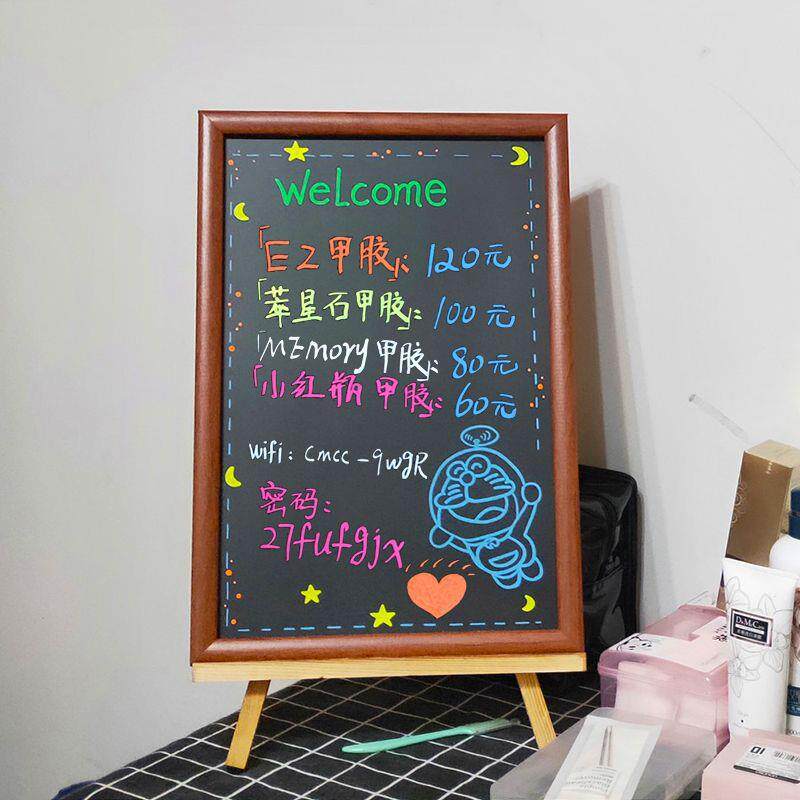 Welcome
「EZ甲胶」: 120元
「萃星石甲胶」: 100元
「MEmory甲胶」: 80元
「小红瓶甲胶」: 60元
wifi: cmcc-9wgR
密码:
27fufgjx
DMC